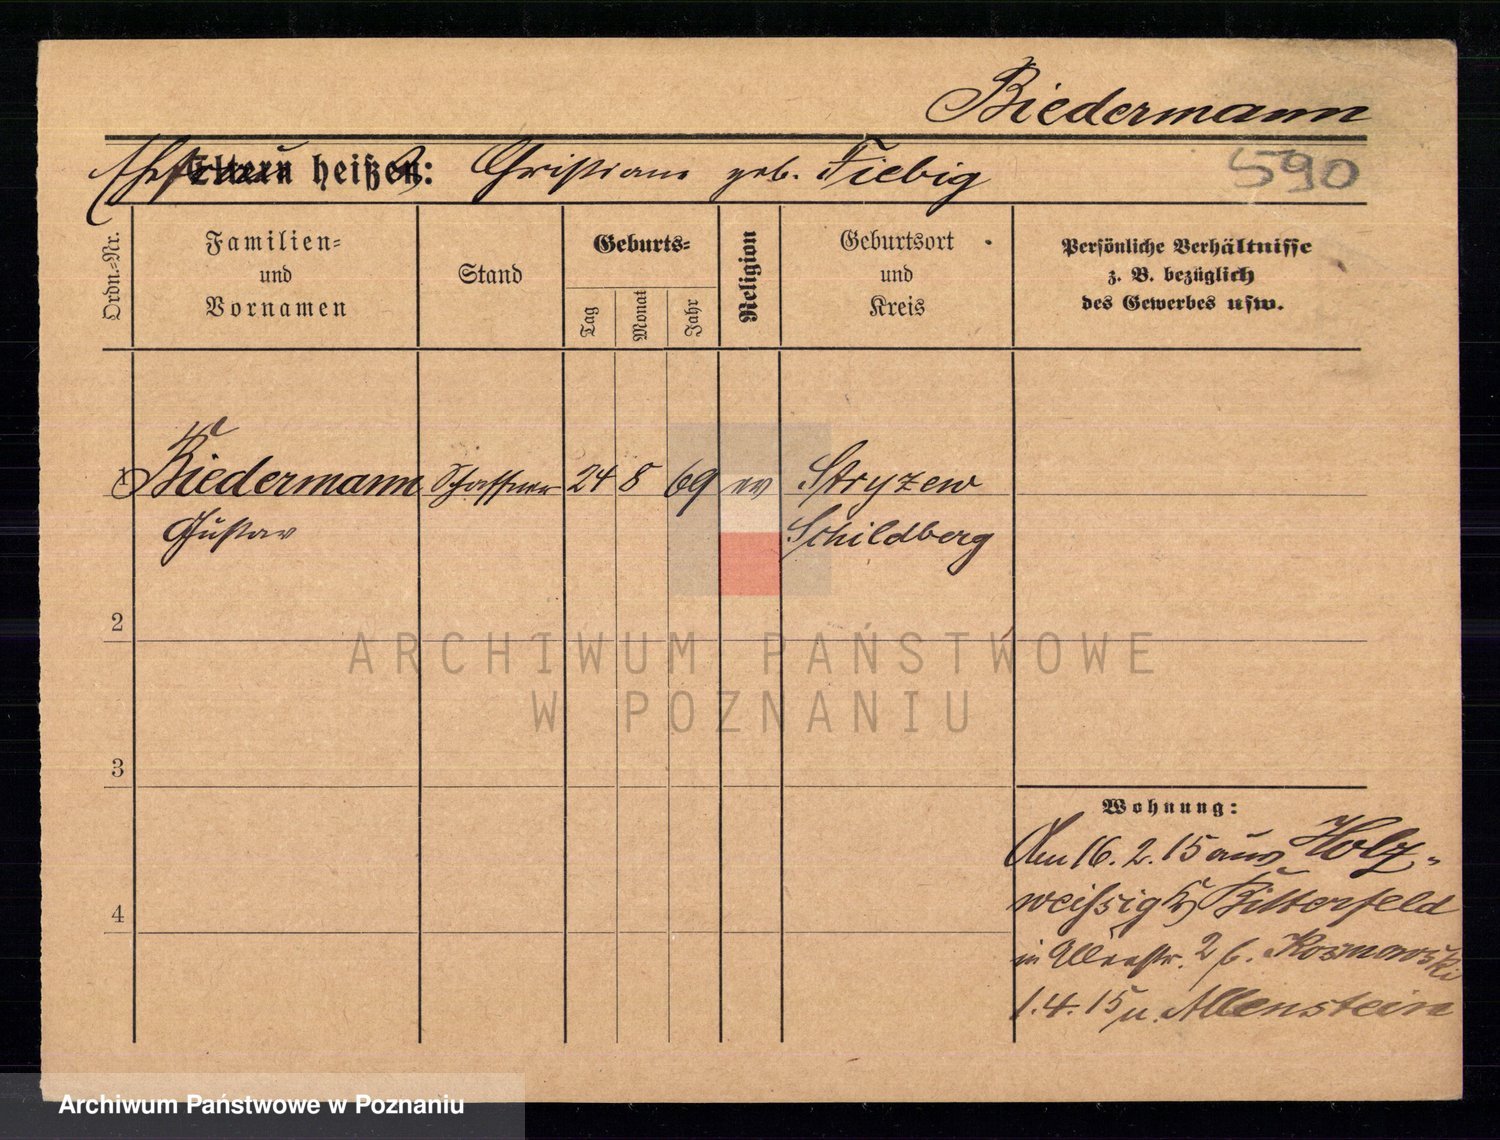 Biedermann
590
Eltern heißen: Christiane geb. Fiebig
Ordn.-Nr.
Familien-
und
Vornamen
Stand
Geburts-
Tag
Monat
Jahr
Religion
Geburtsort
und
Kreis
Persönliche Verhältnisse
z. B. bezüglich
des Gewerbes usw.
1 Biedermann Schaffner 24 8 69 ev Stryzew
Gustav Schildberg
2
3
4
Wohnung:
Am 16. 2. 15 aus Holz-
weißig Bitterfeld
in 2 b.
1. 4. 15 n. Allenstein
ARCHIWUM PAŃSTWOWE
W POZNANIU
Archiwum Państwowe w Poznaniu